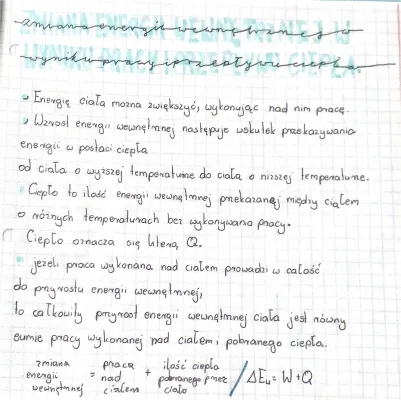 zmiana energii wewnętrznej w
wyniku pracy i przepływu ciepła
Energię ciała można zwiększyć, wykonując nad nim pracę.
Wzrost energii wewnętrznej następuje wskutek przekazywania
energii w postaci ciepła
od ciała o wyższej temperaturze do ciała o niższej temperaturze.
Ciepło to ilość energii wewnętrznej przekazanej między ciałem
o różnych temperaturach bez wykonywania pracy.
Ciepło oznacza się literą Q.
jeżeli praca wykonana nad ciałem prowadzi w całość
do przyrostu energii wewnętrznej,
to całkowity przyrost energii wewnętrznej ciała jest równy
sumie pracy wykonanej nad ciałem i pobranego ciepła.
zmiana energii wewnętrznej = praca nad ciałem + ilość ciepła pobranego przez ciało / ΔEw = W + Q